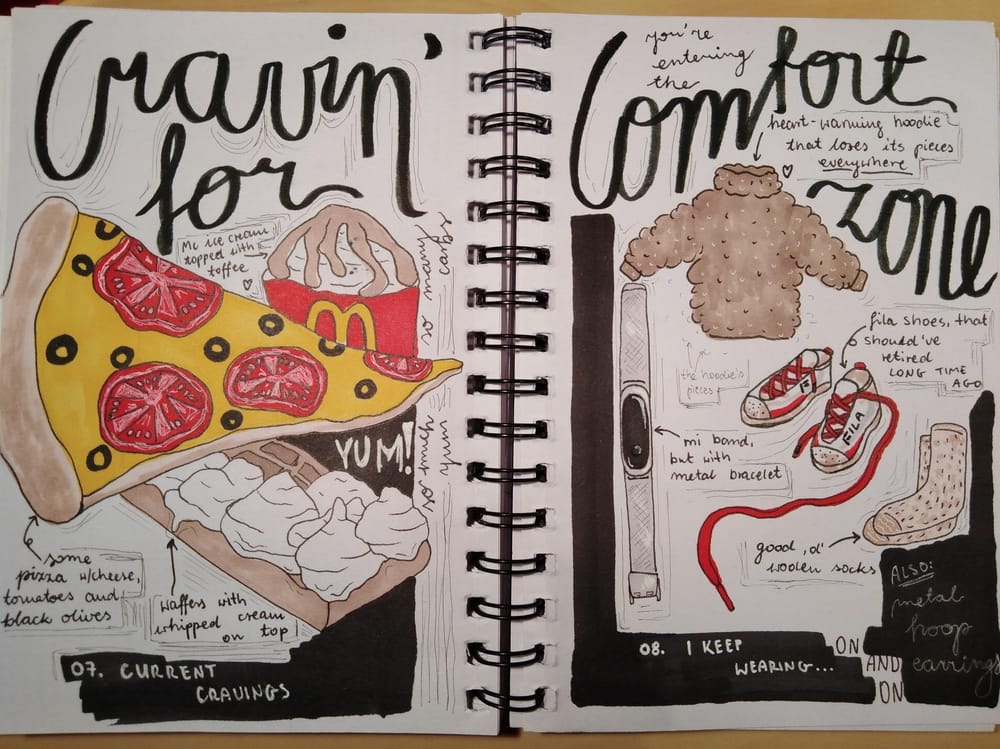 Cravin'
for
Mc ice cream
topped with
toffee
so many
carbs
YUM!
so much
yum
some
pizza w/cheese,
tomatoes and
black olives
waffers with
whipped cream
on top
07. CURRENT
CRAVINGS
you're
entering
the
Comfort
zone
heart-warming hoodie
that loses its pieces
everywhere
the hoodie's
pieces
fila shoes, that
should've
retired
LONG TIME
AGO
FILA
mi band,
but with
metal bracelet
good 'ol'
woolen socks
ALSO:
metal
hoop
earrings
08. I KEEP
WEARING...
ON
AND
ON